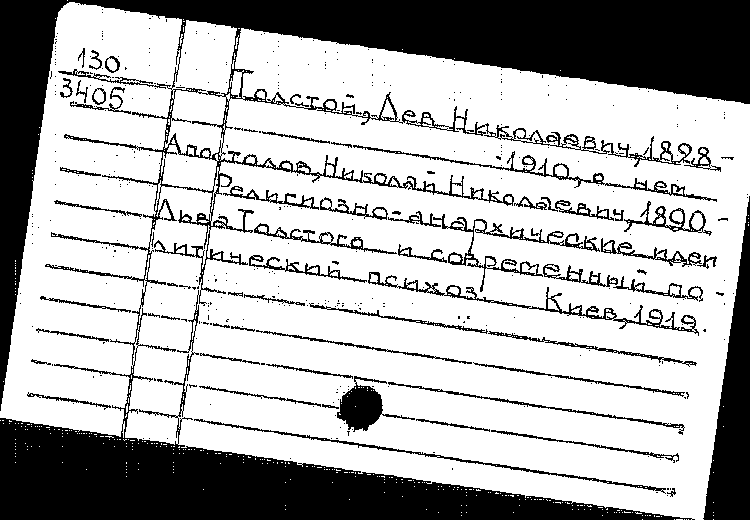 130.
3405
Толстой, Лев Николаевич, 1828-
1910, о нем.
Апостолов, Николай Николаевич, 1890-
Религиозно-анархические идеи
Льва Толстого и современный по-
литический психоз. Киев, 1919.